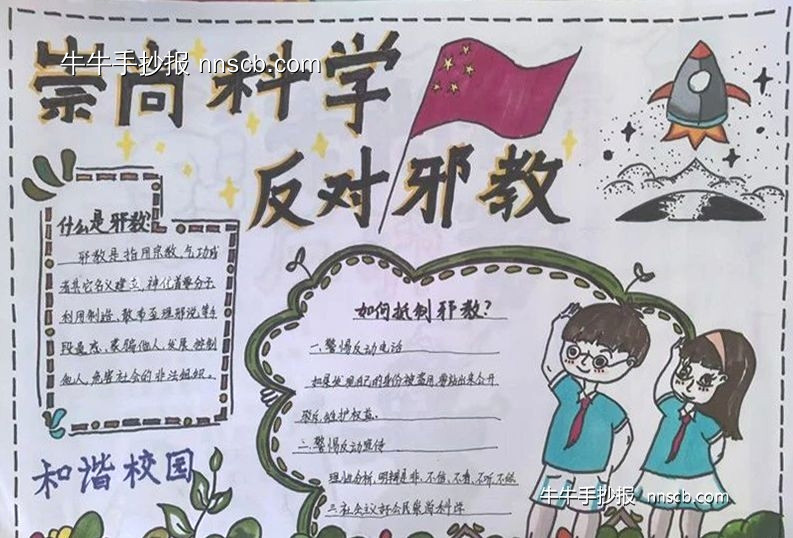 崇尚科学
反对邪教
牛牛手抄报 nnscb.com
什么是邪教
邪教是指用宗教、气功或
者其它名义建立，神化首要分子
利用制造、散布歪理邪说等手
段蛊惑、蒙骗他人，发展控制
他人，危害社会的非法组织。
和谐校园
如何抵制邪教？
一、警惕反动电话
如果发现自己的身份被盗用，要站出来公开
投诉，维护权益。
二、警惕反动宣传
理性分析，明辨是非、不信、不看、不听、不
三、社会主义 公民崇尚科学
牛牛手抄报 nnscb.com